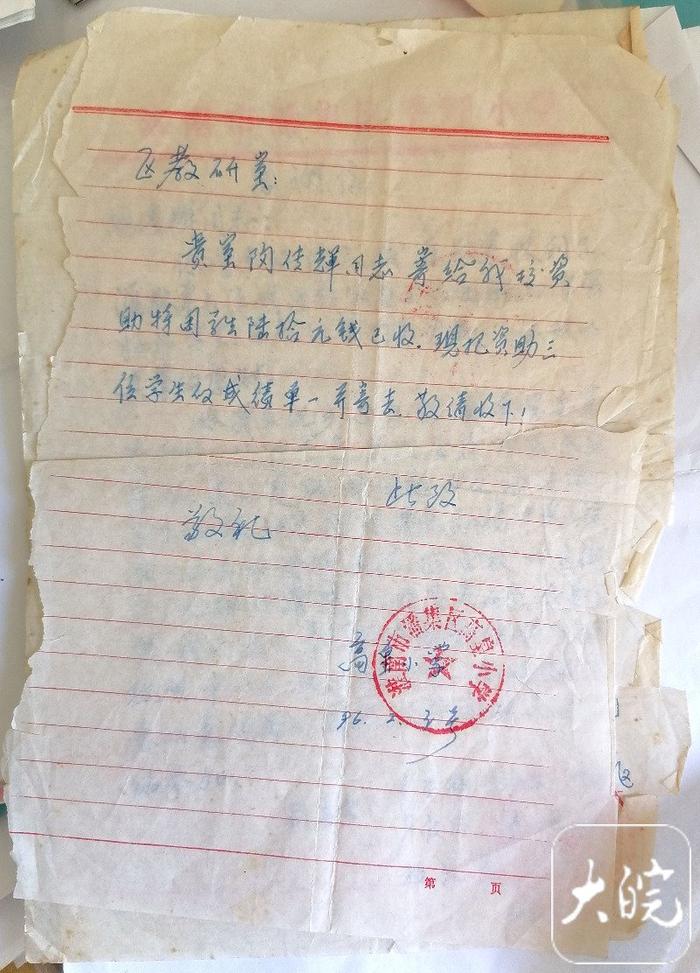 区教研室:
贵室陶传辉同志寄给我校资
助特困生陆拾元钱已收.现把资助三
位学生的成绩单一并寄去 敬请收下!
此致
敬礼
高皇小学
淮南市潘集区高皇小学
96.2.
第 页
区
大皖